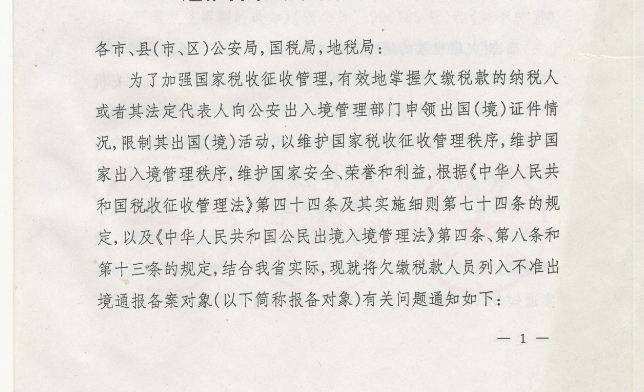 各市、县(市、区)公安局,国税局,地税局:
为了加强国家税收征收管理,有效地掌握欠缴税款的纳税人
或者其法定代表人向公安出入境管理部门申领出国(境)证件情
况,限制其出国(境)活动,以维护国家税收征收管理秩序,维护国
家出入境管理秩序,维护国家安全、荣誉和利益,根据《中华人民共
和国税收征收管理法》第四十四条及其实施细则第七十四条的规
定,以及《中华人民共和国公民出境入境管理法》第四条、第八条和
第十三条的规定,结合我省实际,现就将欠缴税款人员列入不准出
境通报备案对象(以下简称报备对象)有关问题通知如下:
— 1 —